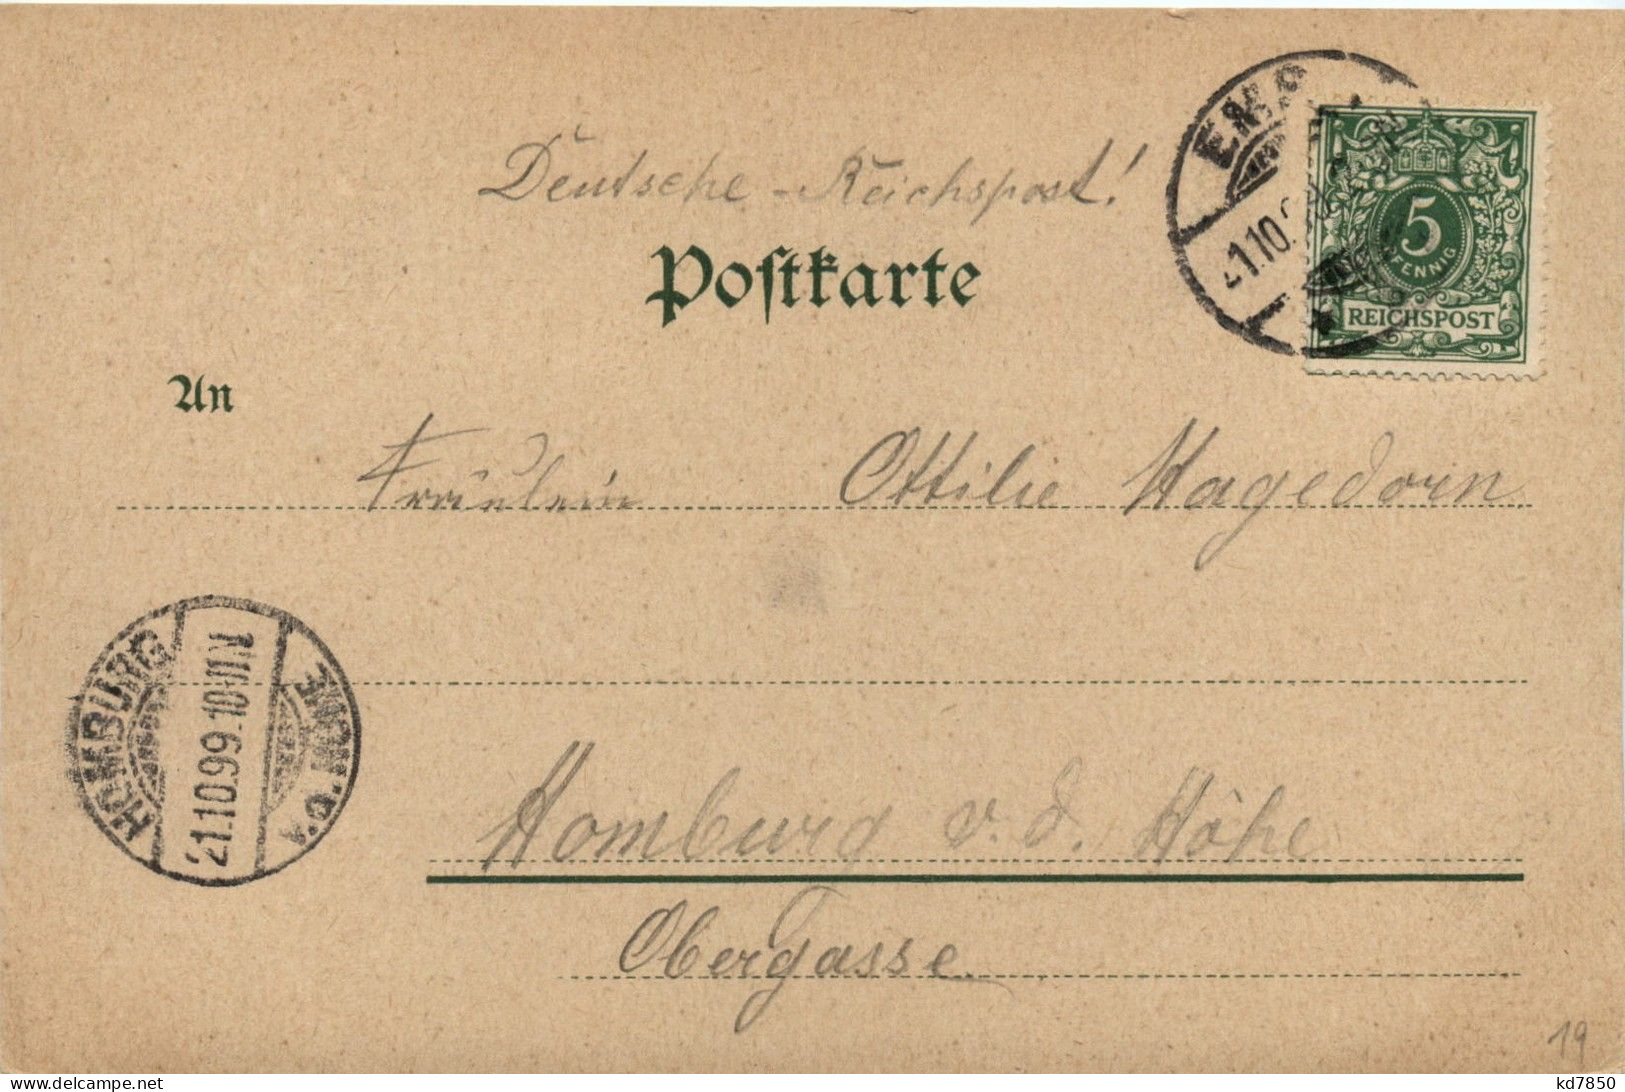 Deutsche-Reichspost!
Postkarte
EMS
21.10.
5
PFENNIG
REICHSPOST
An
Fräulein Ottilie Hagedorn
HOMBURG
21.10.99.10-11N.
v.d. HÖHE
Homburg v. d. Höhe
Obergasse
19
delcampe.net
kd7850